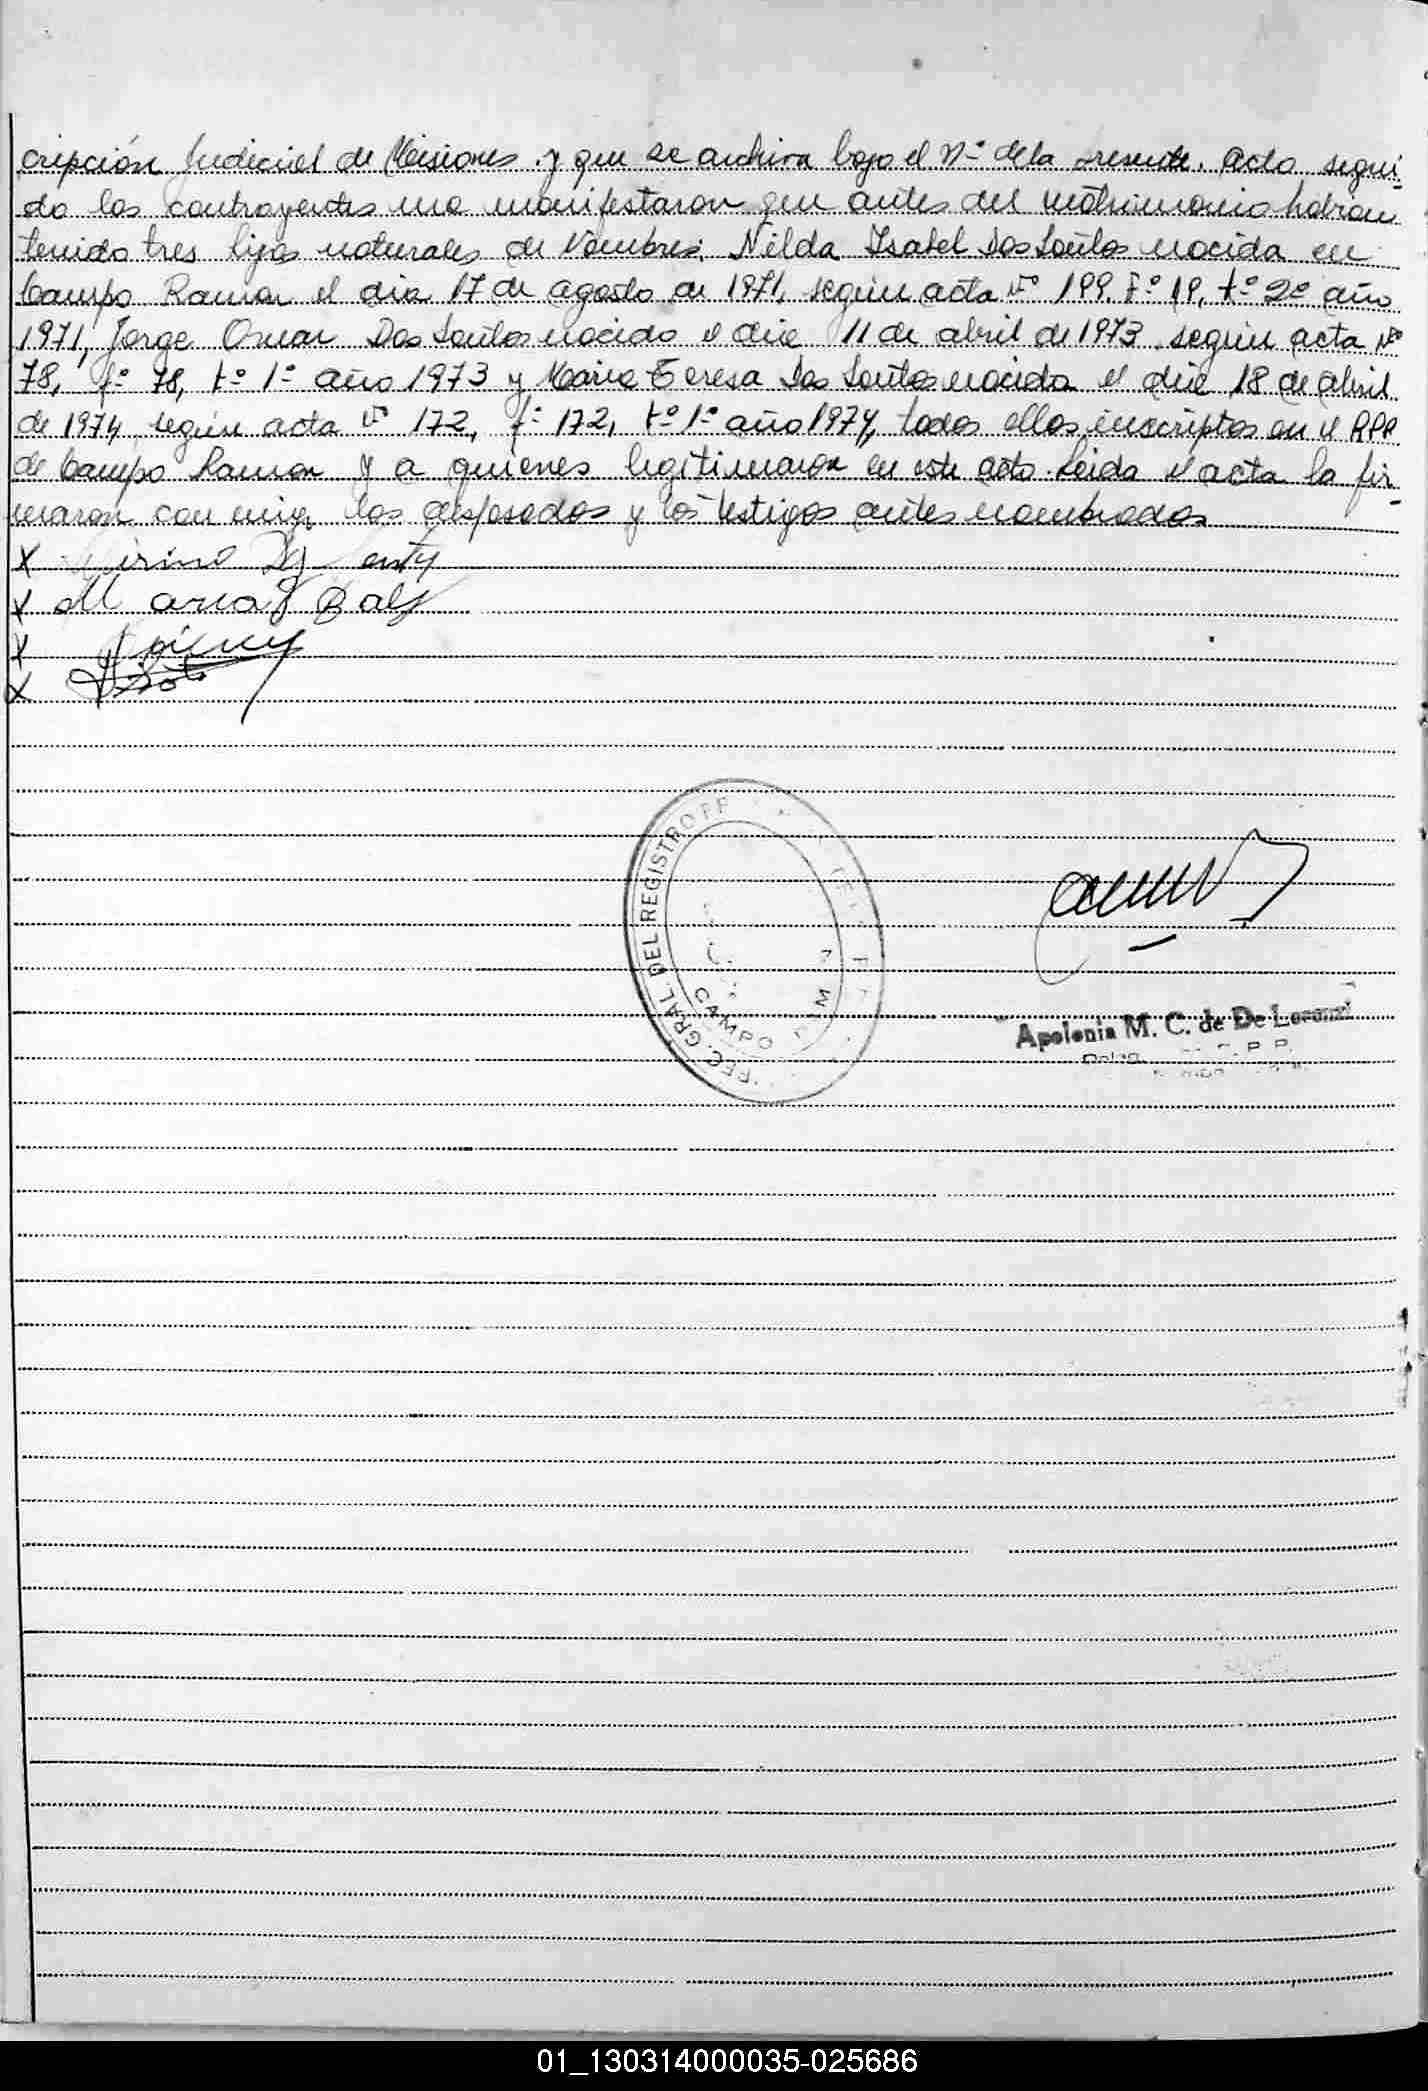 cripción Judicial de Misiones y que se archiva bajo el Nº de la presente. Acto segui-
do los contrayentes me manifestaron que antes del matrimonio habían
tenido tres hijos naturales de Nombres: Nilda Isabel Dos Santos nacida en
Campo Ramon el dia 17 de agosto de 1971, según acta Nº 199. Fº 19, tº 2º año
1971, Jorge Omar Dos Santos nacido el dia 11 de abril de 1973 según acta Nº
78, fº 78, tº 1º año 1973 y Maria Teresa Dos Santos nacida el dia 18 de abril
de 1974, según acta Nº 172, fº 172, tº 1º año 1974, todos ellos inscriptos en el RPP
de Campo Ramon y a quienes legitimaron en este acto. Leida el acta la fir-
maron con migo los desposados y los testigos antes nombrados
X
X Maria
X
X
GRAL. DEL REGISTRO PP
CAMPO
Apolonia M. C. de De Lorenzi
01_130314000035-025686